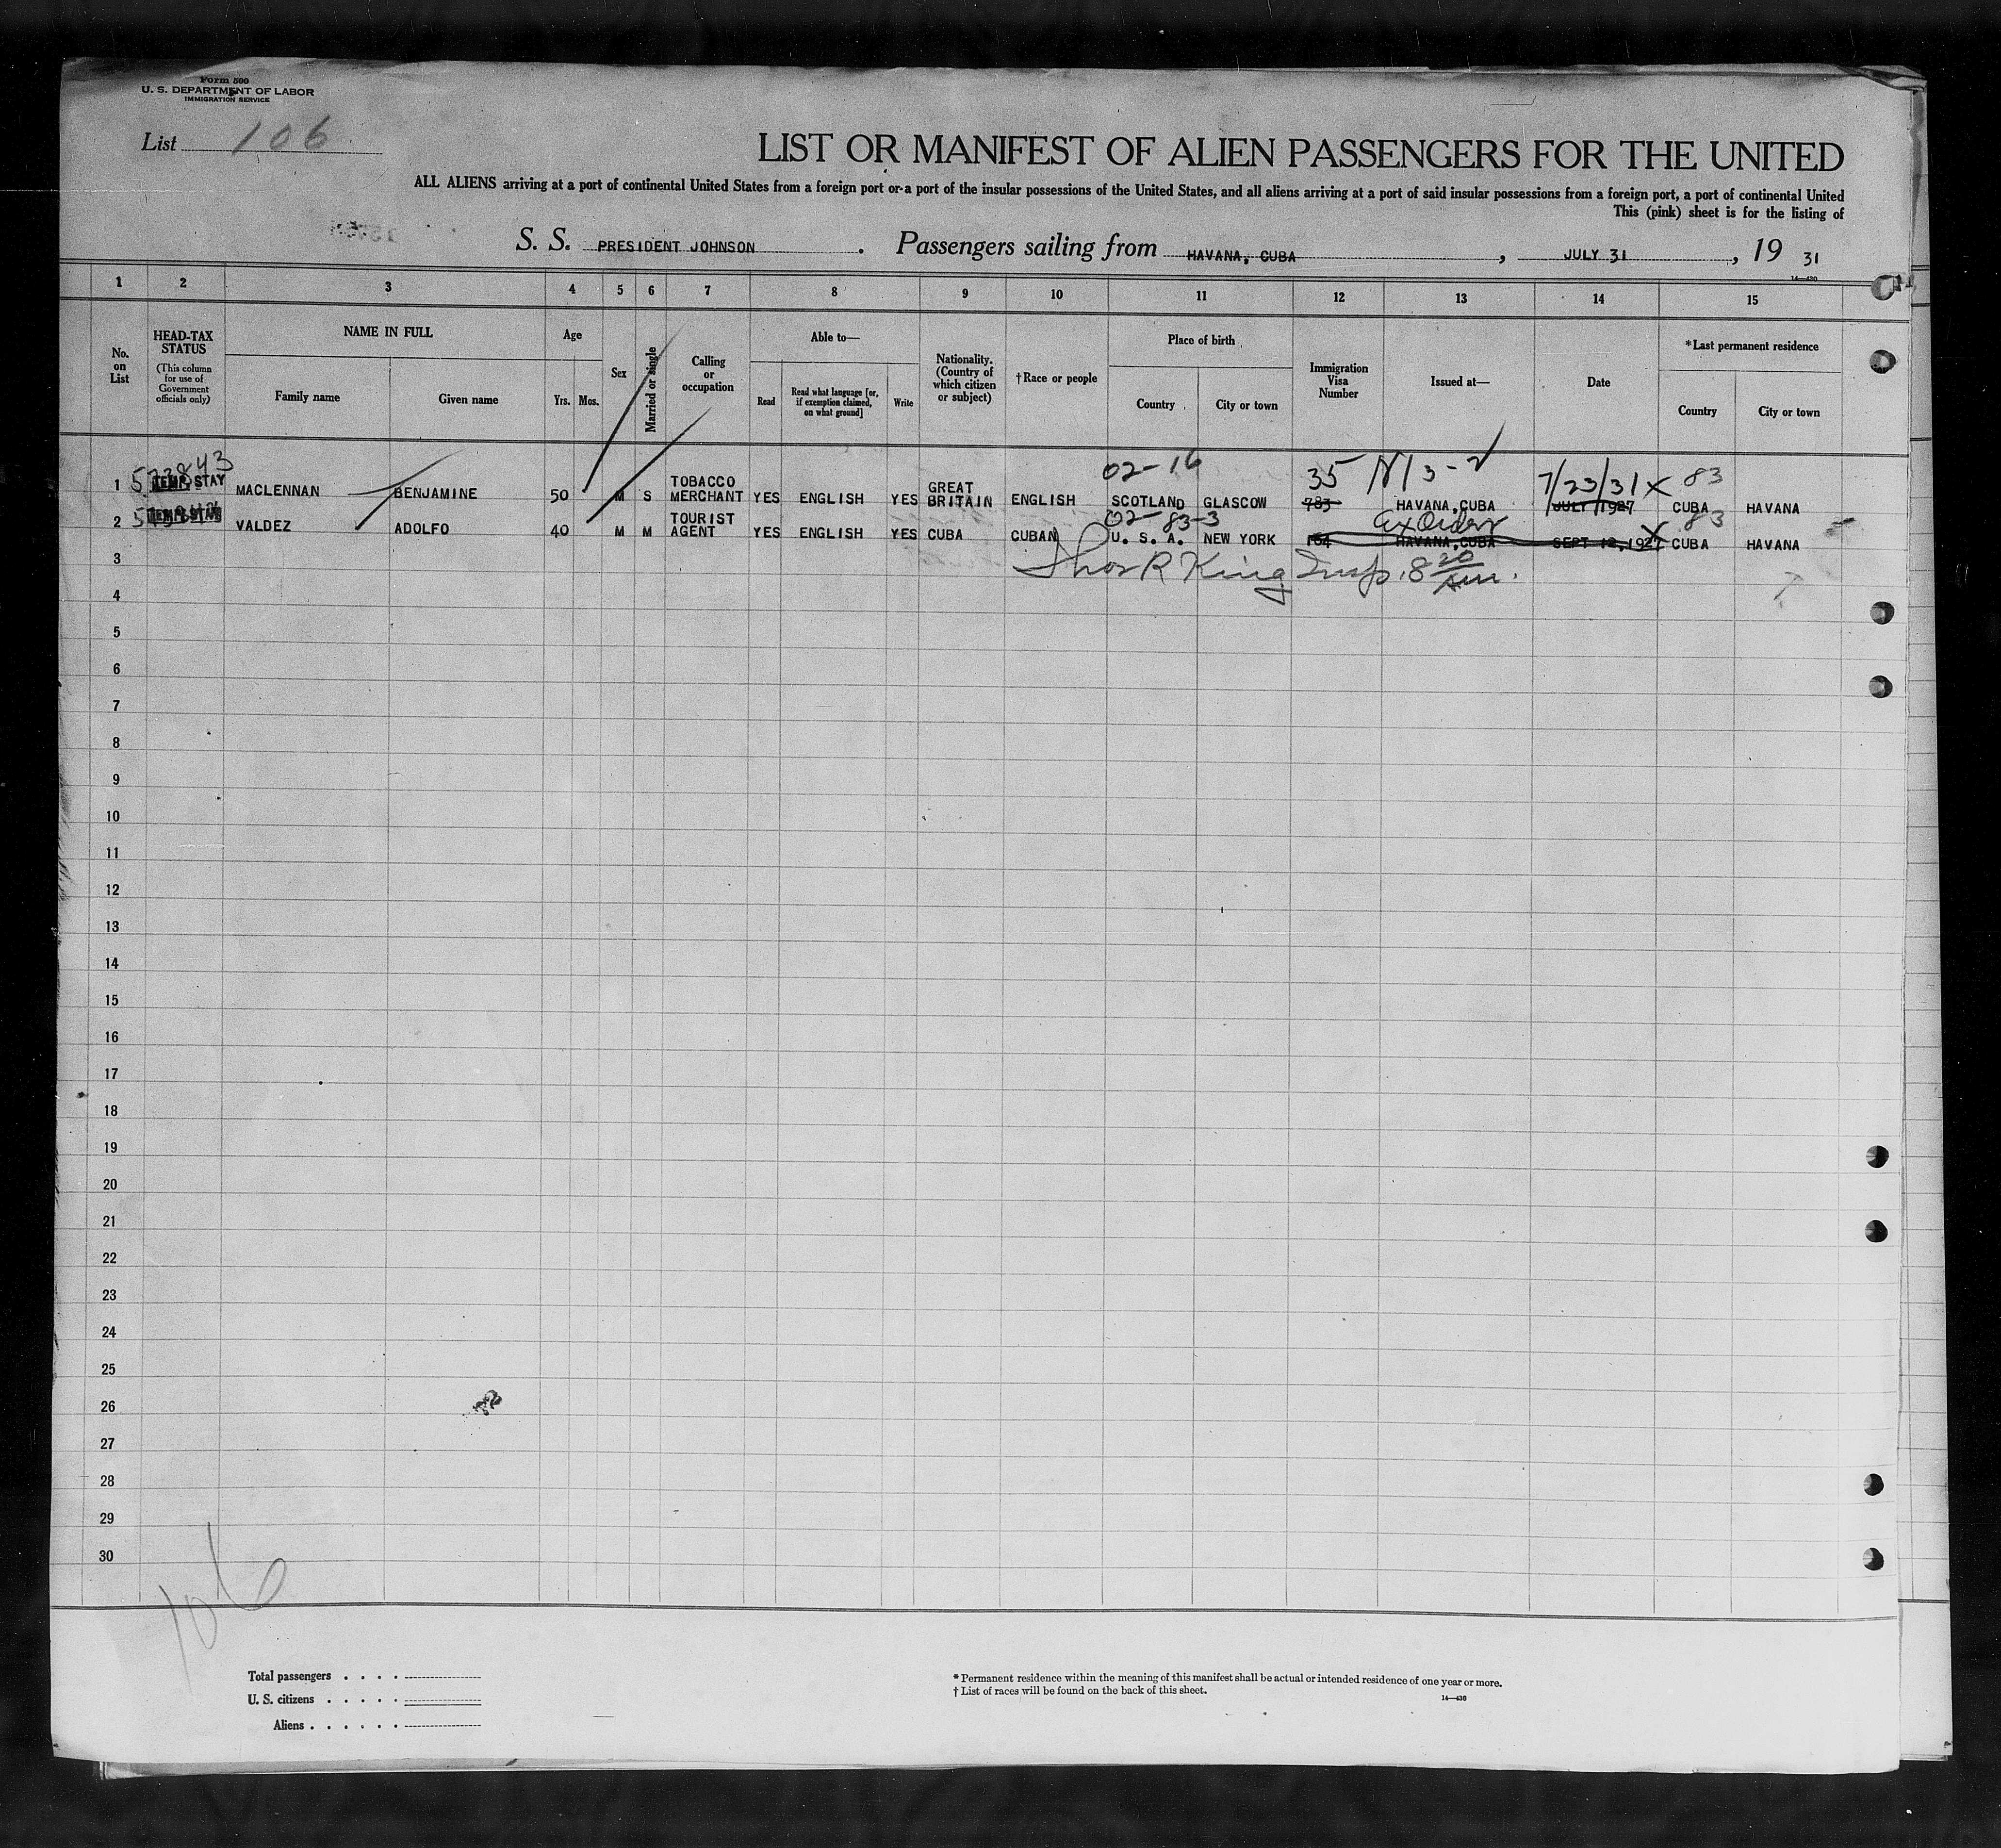 Form 500
U. S. DEPARTMENT OF LABOR
IMMIGRATION SERVICE
List 106
LIST OR MANIFEST OF ALIEN PASSENGERS FOR THE UNITED
ALL ALIENS arriving at a port of continental United States from a foreign port or a port of the insular possessions of the United States, and all aliens arriving at a port of said insular possessions from a foreign port, a port of continental United
This (pink) sheet is for the listing of
S. S. PRESIDENT JOHNSON. Passengers sailing from HAVANA, CUBA, JULY 31, 19 31
14—430
1 2 3 4 5 6 7 8 9 10 11 12 13 14 15
No. on List
HEAD-TAX STATUS
(This column for use of Government officials only)
NAME IN FULL
Family name
Given name
Age
Yrs.
Mos.
Sex
Married or single
Calling or occupation
Able to—
Read
Read what language [or, if exemption claimed, on what ground]
Write
Nationality. (Country of which citizen or subject)
†Race or people
Place of birth
Country
City or town
Immigration Visa Number
Issued at—
Date
*Last permanent residence
Country
City or town
02-16 35 N/3-2 7/23/31 X 83
1 TEMP. STAY MACLENNAN BENJAMINE 50 M S TOBACCO MERCHANT YES ENGLISH YES GREAT BRITAIN ENGLISH SCOTLAND GLASCOW 783 HAVANA,CUBA JULY 1927 CUBA HAVANA
02-83-3 Ex Order X 83
2 VALDEZ ADOLFO 40 M M TOURIST AGENT YES ENGLISH YES CUBA CUBAN U. S. A. NEW YORK 164 HAVANA,CUBA SEPT 12,1927 CUBA HAVANA
3 Thos R King Insp. 8 20 Am.
4
5
6
7
8
9
10
11
12
13
14
15
16
17
18
19
20
21
22
23
24
25
26
27
28
29
30
106
Total passengers . . . .
U. S. citizens . . . . .
Aliens . . . . . .
* Permanent residence within the meaning of this manifest shall be actual or intended residence of one year or more.
† List of races will be found on the back of this sheet.
14—430